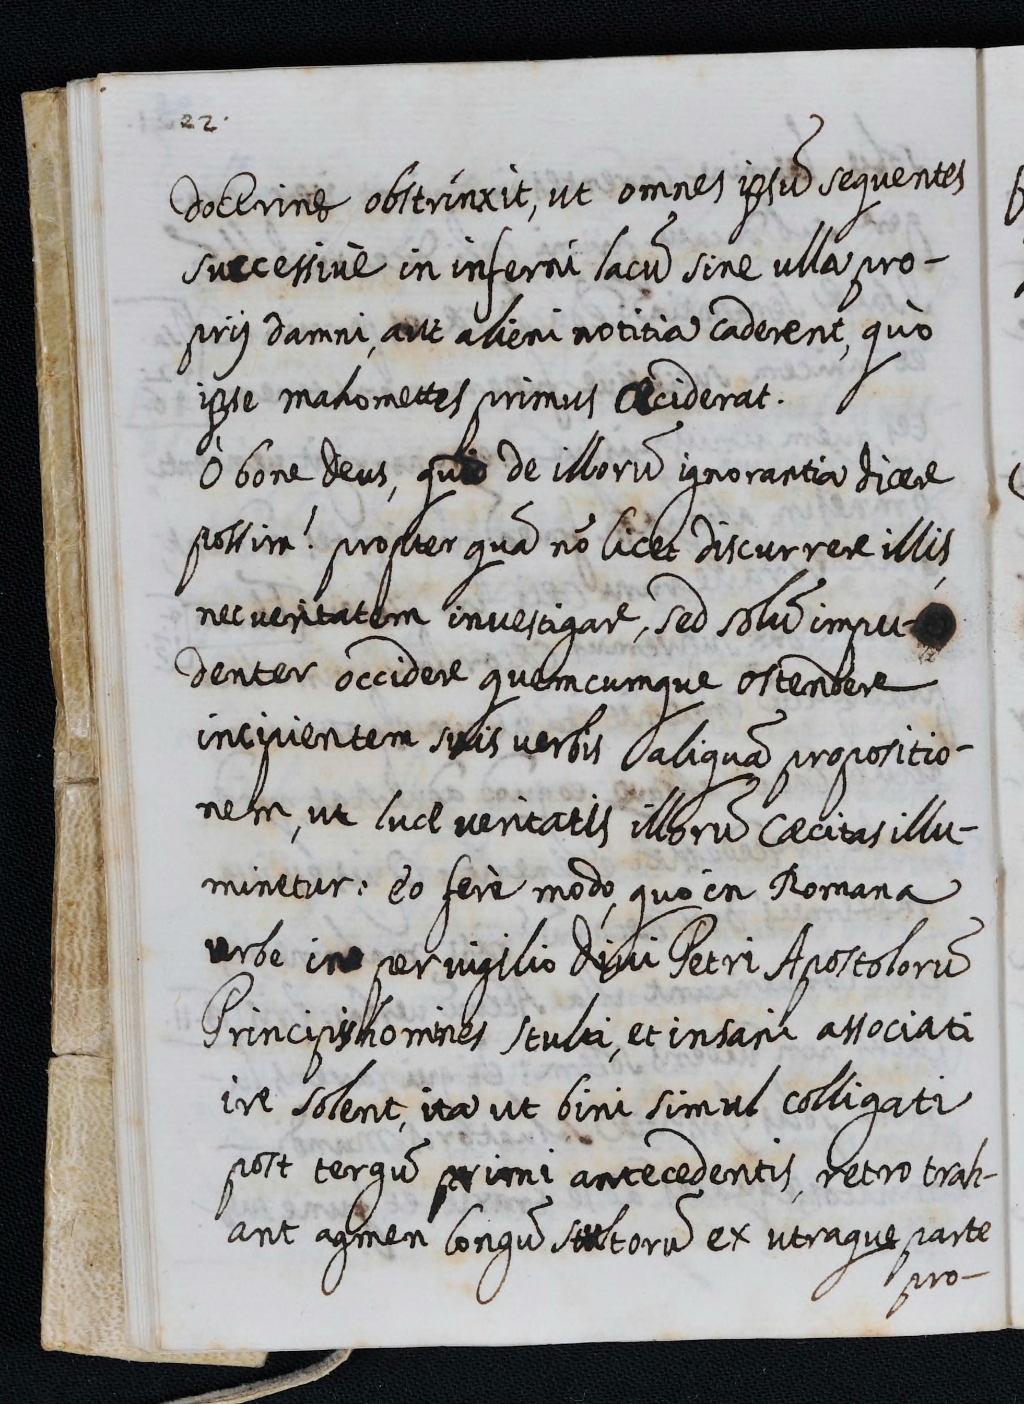 22.
doctrine obstrinxit, ut omnes ipsũ sequentes
successivè in inferni lacũ sine ulla pro-
prij damni, aut alieni notitia caderent, quò
ipse mahomettes primus ceciderat.
Ò bone Deus, quid de illorũ ignorantia dicere
possim! propter quã nõ licet discurrere illis,
nec veritatem investigare, sed solũ impu-
denter occidere quemcumque ostendere
incipientem suis verbis aliquã propositio-
nem, ut luce veritatis illorũ cæcitas illu-
minetur: eo ferè modo, quo in Romana
urbe in pervigilio Divi Petri Apostolorũ
Principis homines stulti, et insani associati
ire solent, ita ut bini simul colligati
post tergũ primi antecedentis, retro trah-
ant agmen longũ stultorũ ex utraque parte
pro-